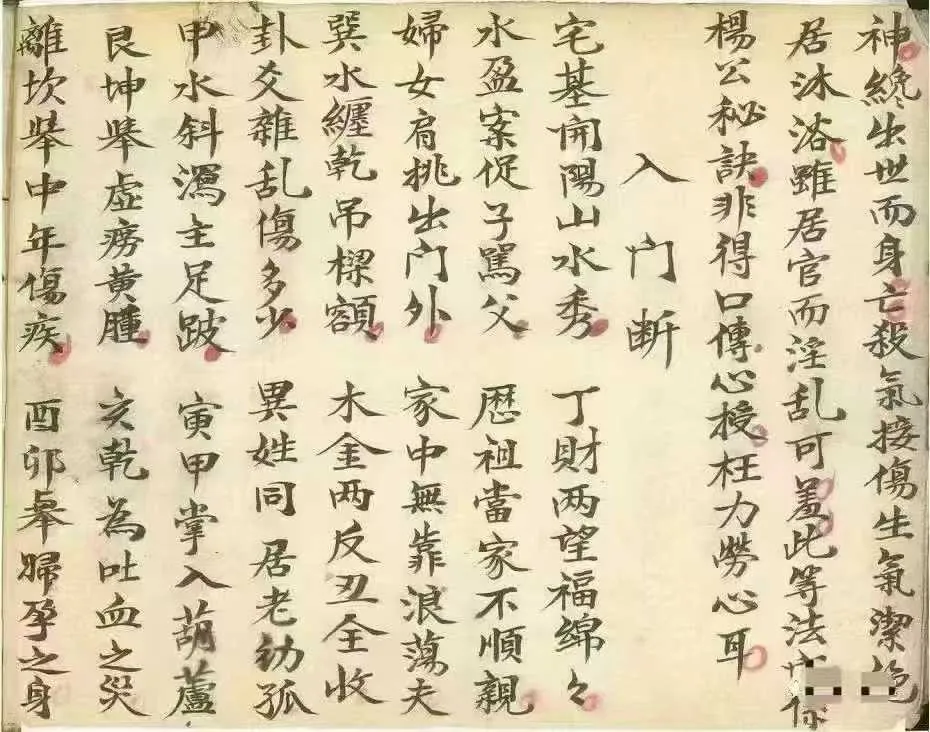 神纔出世而身亡殺氣接傷生氣潔
居沐浴雖居官而淫乱可羞此等法
楊公秘訣非得口傳心授枉力勞心耳
入門断
宅基開陽山水秀 丁財两望福綿々
水盈案促子罵父 歴祖當家不順親
婦女肩挑出门外 家中無靠浪蕩夫
巽水纏乾吊樑額 木金两反丑全收
卦爻雜乱傷多少 異姓同居老幼孤
甲水斜瀉主足跛 寅甲掌入葫蘆
艮坤舉虚癆黄腫 亥乾為吐血之災
離坎舉中年傷疾 酉卯舉婦孕之身